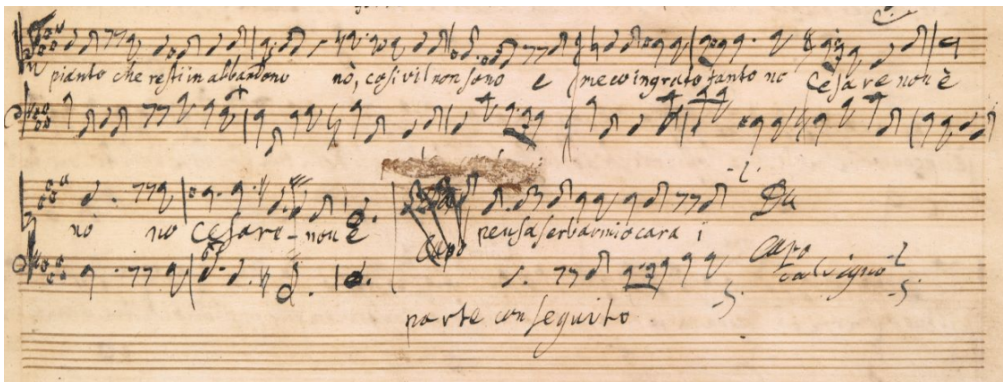 pianto che resti in abbandono nò, cosi vil non sono e meco ingrato tanto no Cesare non è
nò no Cesare non è pensa serbarmi o cara i
Capo
Da
Capo
al segno
parte con seguito